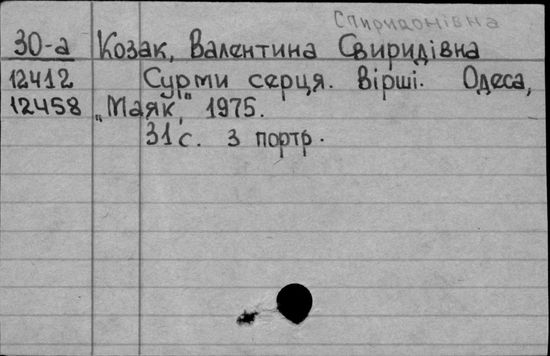 Спиридонівна
30-а Козак, Валентина Свиридівна
12412 Сурми серця. Вірші. Одеса,
12458 „Маяк", 1975.
31 с. з портр.